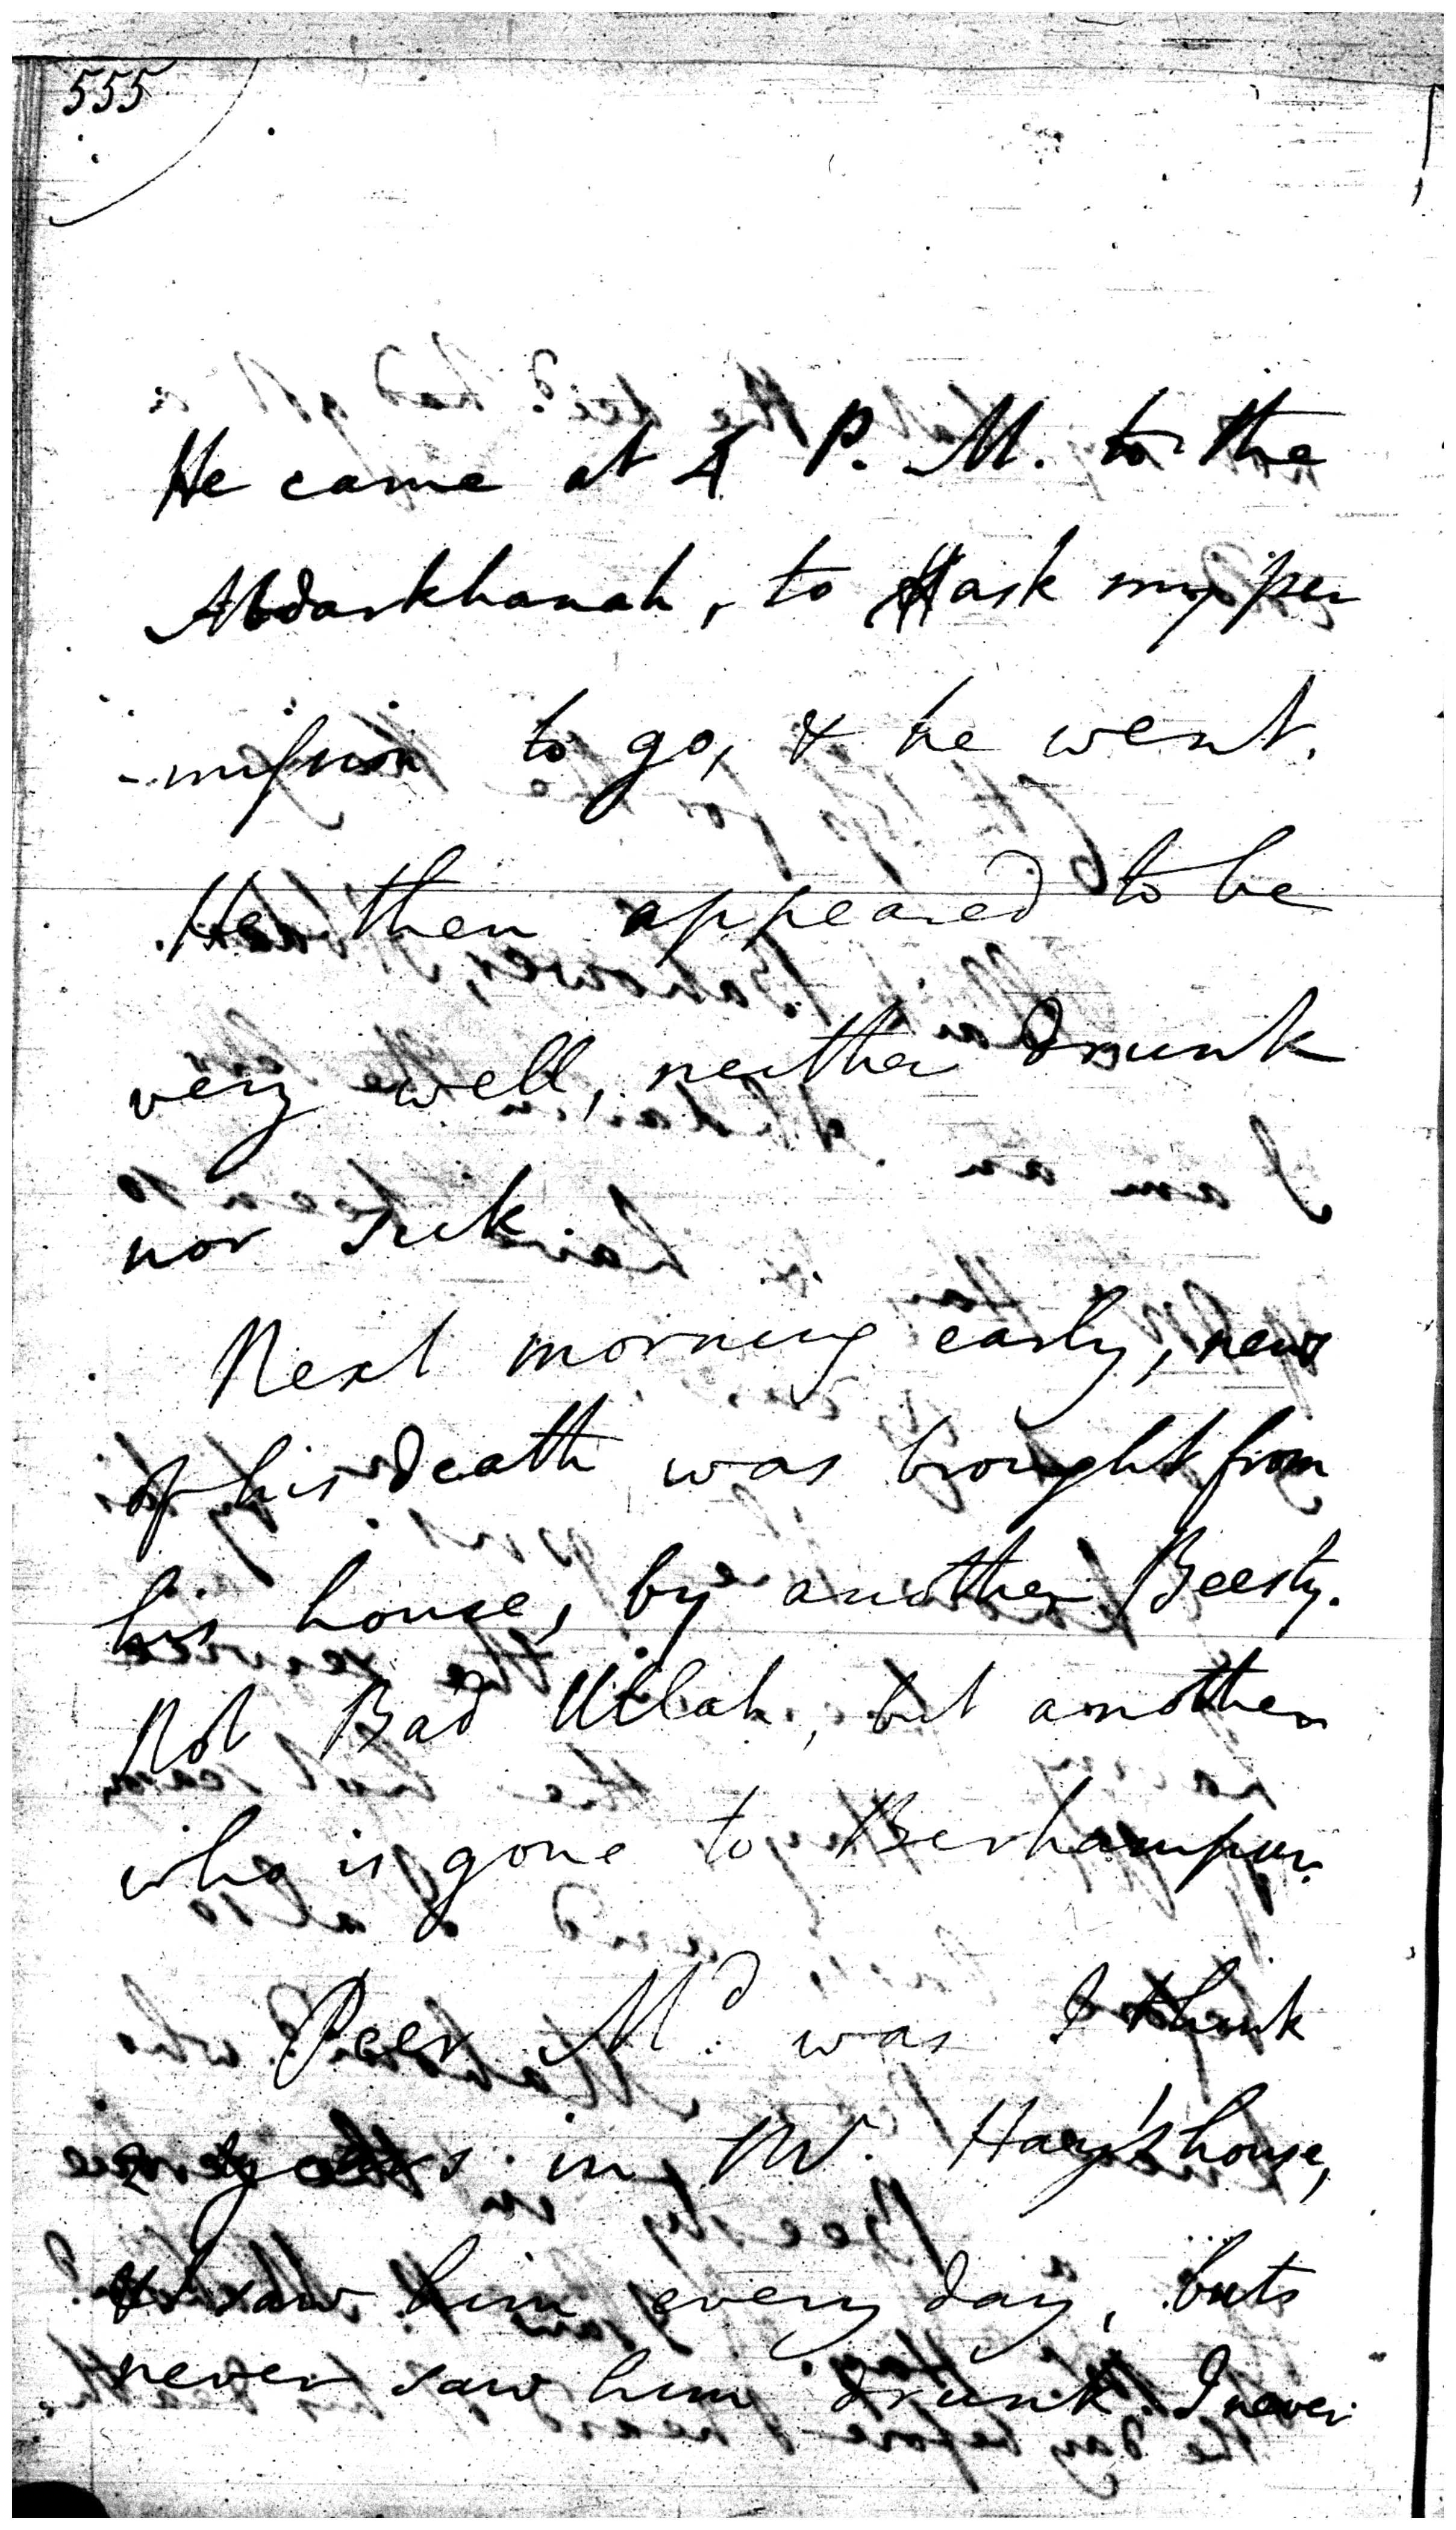 555
He came at 4 P. M. to the
Abdarkhanah, to ask my per
-mission to go, & he went.
He then appeared to be
very well, neither drunk
nor sick.
Next morning early, news
of his death was brought from
his house, by another Beesty.
Not Bad Ullah, but another
who is gone to Berhampur.
Peer Md. was I think
in Mr. Hay's house,
& I saw him every day, but
never saw him drunk. I never